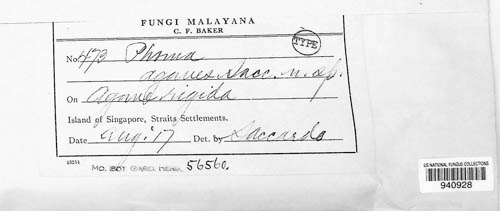 FUNGI MALAYANA
C. F. BAKER
TYPE
No. 473 Phoma
agaves Sacc. n. sp.
On Agave rigida
Island of Singapore, Straits Settlements.
Date Aug. '17 Det. by Saccardo
MO. BOT. GARD. HERB. 56560.
US NATIONAL FUNGUS COLLECTIONS
940928